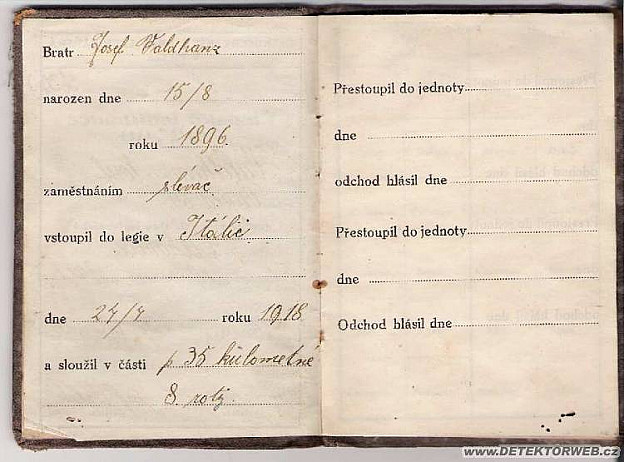 Bratr Josef Valdhanz
narozen dne 15/8
roku 1896
zaměstnáním slévač
vstoupil do legie v Itálii
dne 24/4 roku 1918
a sloužil v části p 35 kulometné
8. roty.
Přestoupil do jednoty
dne
odchod hlásil dne
Přestoupil do jednoty
dne
Odchod hlásil dne
WWW.DETEKTORWEB.CZ